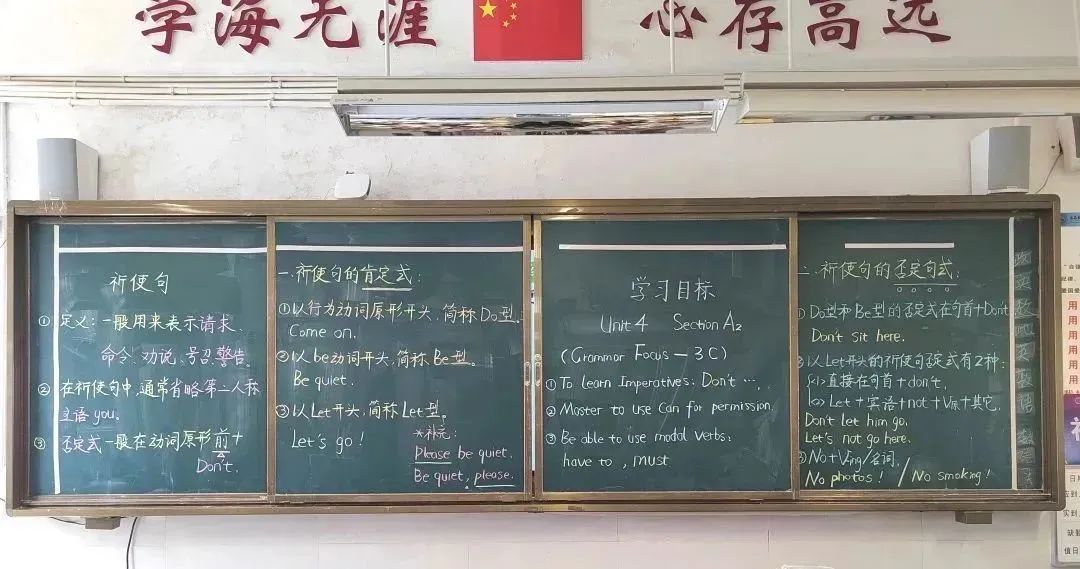 学海无涯
志存高远
祈使句
① 定义：一般用来表示请求、
命令、劝说、号召、警告。
② 在祈使句中，通常省略第一人称
主语 you。
③ 否定式一般在动词原形前+
Don't.
一.祈使句的肯定式：
①以行为动词原形开头，简称Do型。
Come on.
②以be动词开头，简称Be型。
Be quiet.
③以Let开头，简称Let型。
Let's go!
*补充：
Please be quiet.
Be quiet, please.
学习目标
Unit 4 Section A2
(Grammar Focus — 3C)
① To learn Imperatives: Don't ….
② Master to use Can for permission.
③ Be able to use modal verbs:
have to , must
二.祈使句的否定句式：
① Do型和Be型的否定式在句首+Don't.
Don't sit here.
② 以Let开头的祈使句否定式有2种：
<1>直接在句首+don't.
<2> Let+宾语+not+V原+其它.
Don't let him go.
Let's not go here.
③ No+Ving/名词.
No photos! / No smoking!